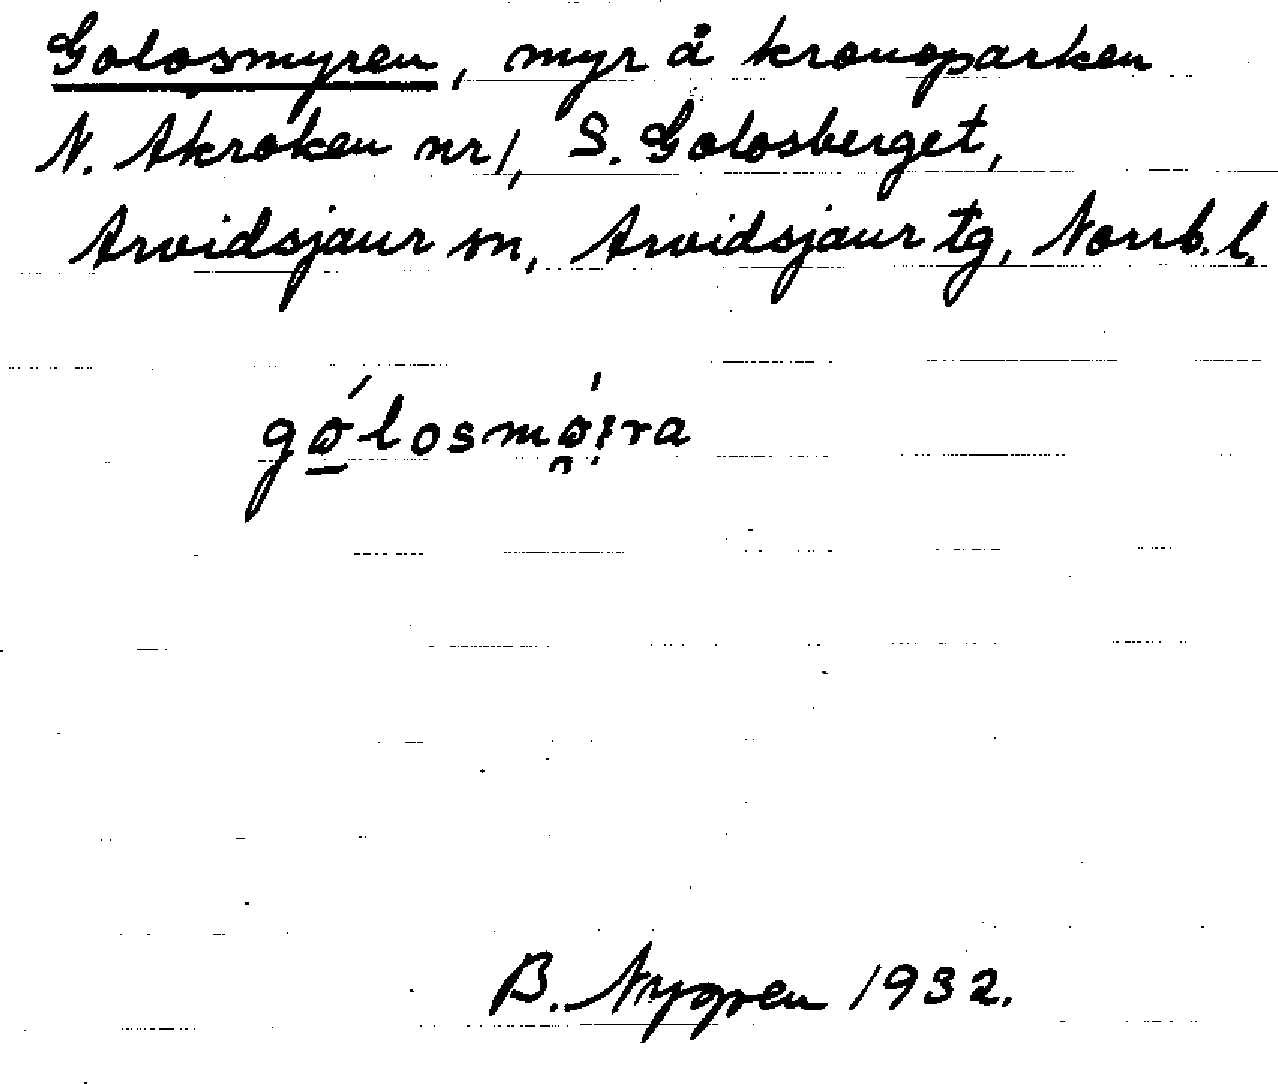 Golosmyren, myr å kronoparken
N. Åkroken nr 1, S. Golosberget,
Arvidsjaur sn, Arvidsjaur tg, Norrb. l.
B. Nygren 1932.